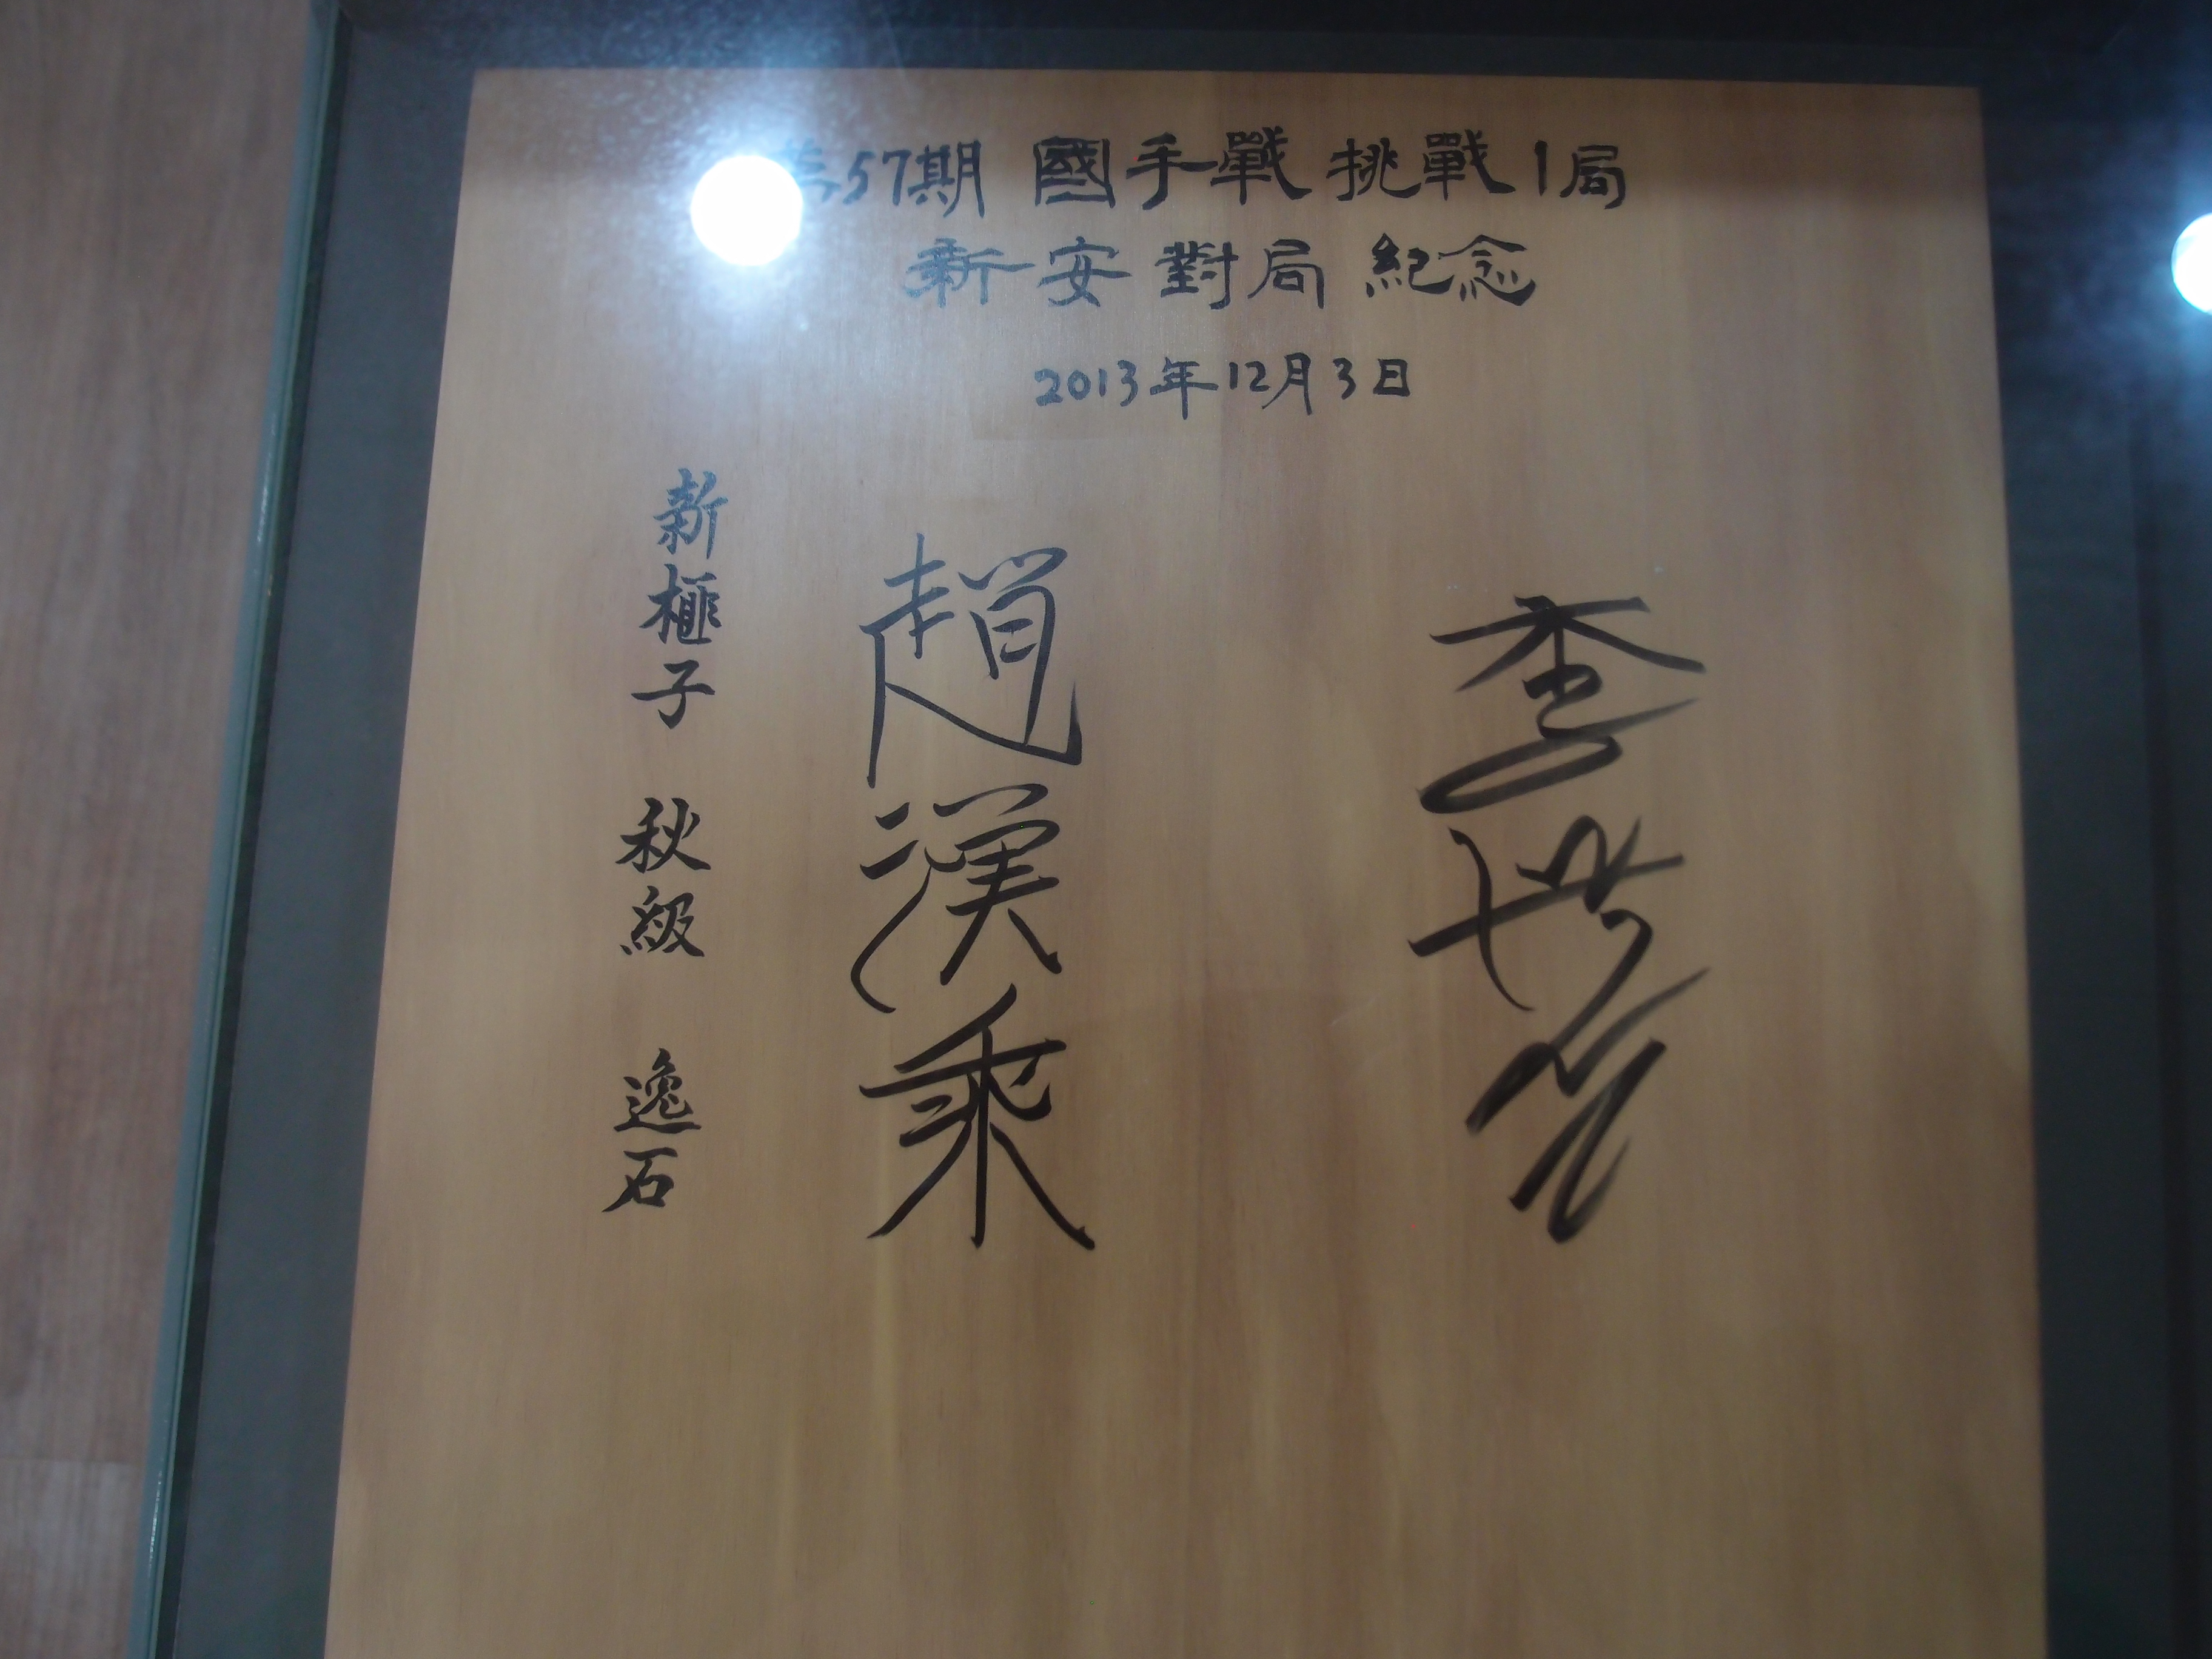 第57期 國手戰 挑戰 1局
新安 對局 紀念
2013年12月3日
李世乭
趙漢乘
新榧子 秋級 逸石